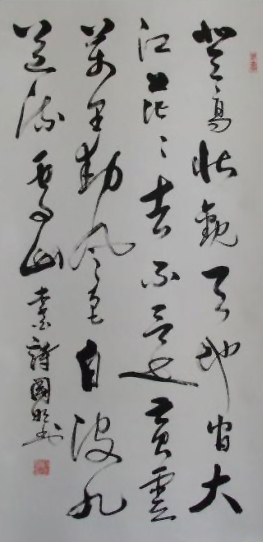 登高壯觀天地間大
江茫々去不還黃雲
萬里動風色白波九
道流雪山 李白詩 國